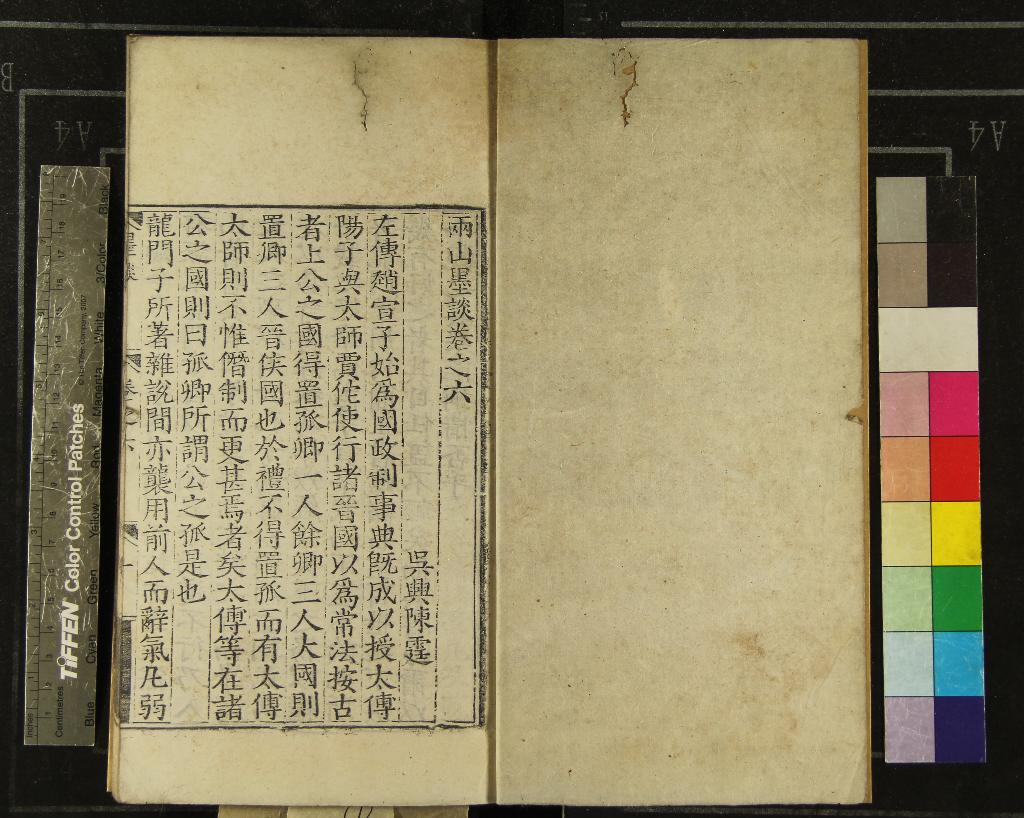 兩山墨談卷之六
吳興陳霆
左傳趙宣子始爲國政制事典旣成以授太傅
陽子與太師賈佗使行諸晉國以爲常法按古
者上公之國得置孤卿一人餘卿三人大國則
置卿三人晉侯國也於禮不得置孤而有太傅
太師則不惟僭制而更甚焉者矣太傅等在諸
公之國則曰孤卿所謂公之孤是也
龍門子所著雜說間亦襲用前人而辭氣凡弱
卷之六
一
TIFFEN Color Control Patches
Blue Cyan Green Yellow Red Magenta White 3/Color Black
Inches
Centimetres
A4
A4
B